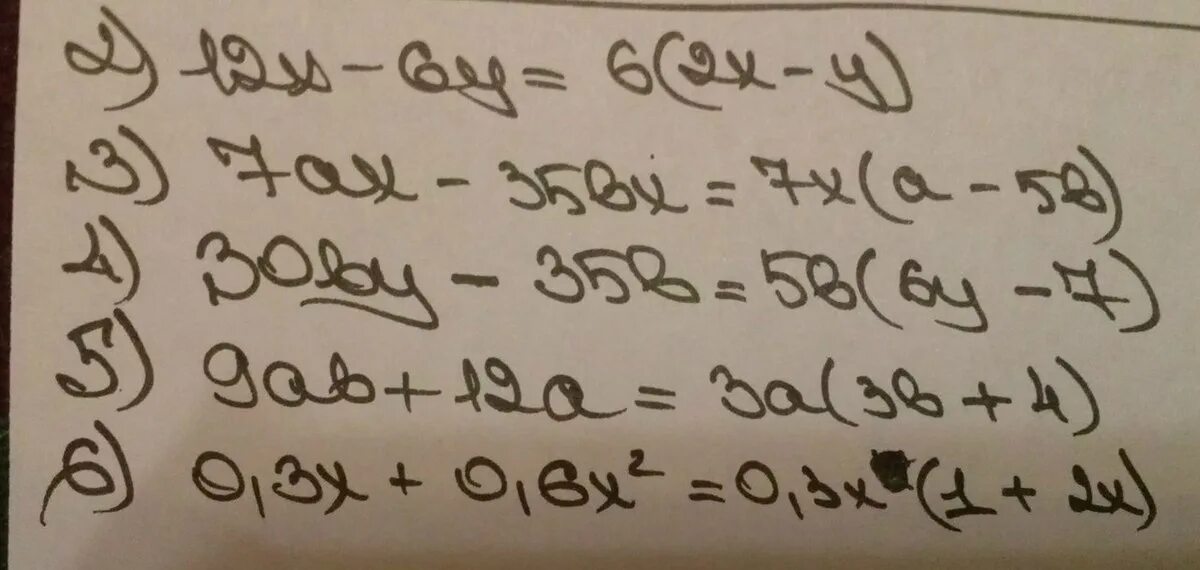 2) 12x - 6y = 6(2x - y)
3) 7ax - 35bx = 7x(a - 5b)
4) 30by - 35b = 5b(6y - 7)
5) 9ab + 12a = 3a(3b + 4)
6) 0,3x + 0,6x² = 0,3x (1 + 2x)